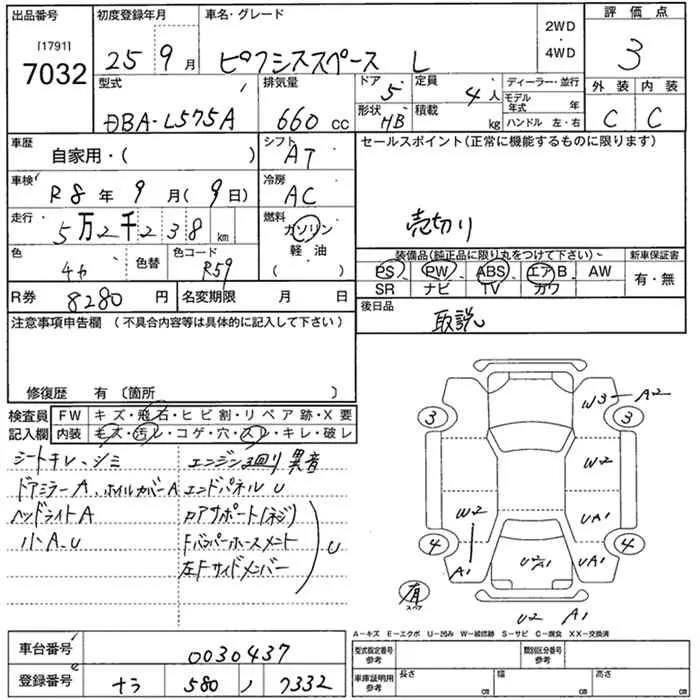 出品番号 初度登録年月 車名・グレード 2WD・4WD 評価点
[1791]
7032 25年 9月 L 3
型式 排気量 ドア 定員 ディーラー・並行 外装 内装
DBA-L575A 660cc 5 4人 モデル年式 年 C C
形状 HB 積載 kg ハンドル 左・右
車歴 自家用・( ) シフト AT セールスポイント(正常に機能するものに限ります)
車検 R8年 9月(9日) 冷房 AC
売切り
走行 5万2千238km 燃料 ガソリン
軽・油
( )
色 色替 色コード R59
装備品(純正品に限り丸をつけて下さい) 新車保証書
PS PW ABS エアB AW 有・無
SR ナビ TV カワ
R券 8280円 名変期限 月 日 後日品 取説
注意事項申告欄(不具合内容等は具体的に記入して下さい)
修復歴 有(箇所 )
検査員記入欄 FW キズ・飛石・ヒビ割・リペア跡・X要
内装 モズ・汚レ・コゲ・穴・スレ・キレ・破レ
シートキレ、シミ エンジン回り異音
ドアミラーA、ホイルカバーA エンドパネルU
ヘッドライトA コアサポート(ネジ)
小A、U U
左Fサイドメンバー
W3 A2
3 3
W2
W2 UA1
4 4
A1 U2A1 UA1
有
スペア
U2 A1
A-キズ E-エクボ U-凹み W-補修跡 S-サビ C-腐食 XX-交換済
車台番号 0030437 型式指定番号 参考 類別区分番号 参考
登録番号 ナラ 580 ノ 7332 車庫証明用 参考 長さ cm 幅 cm 高さ cm